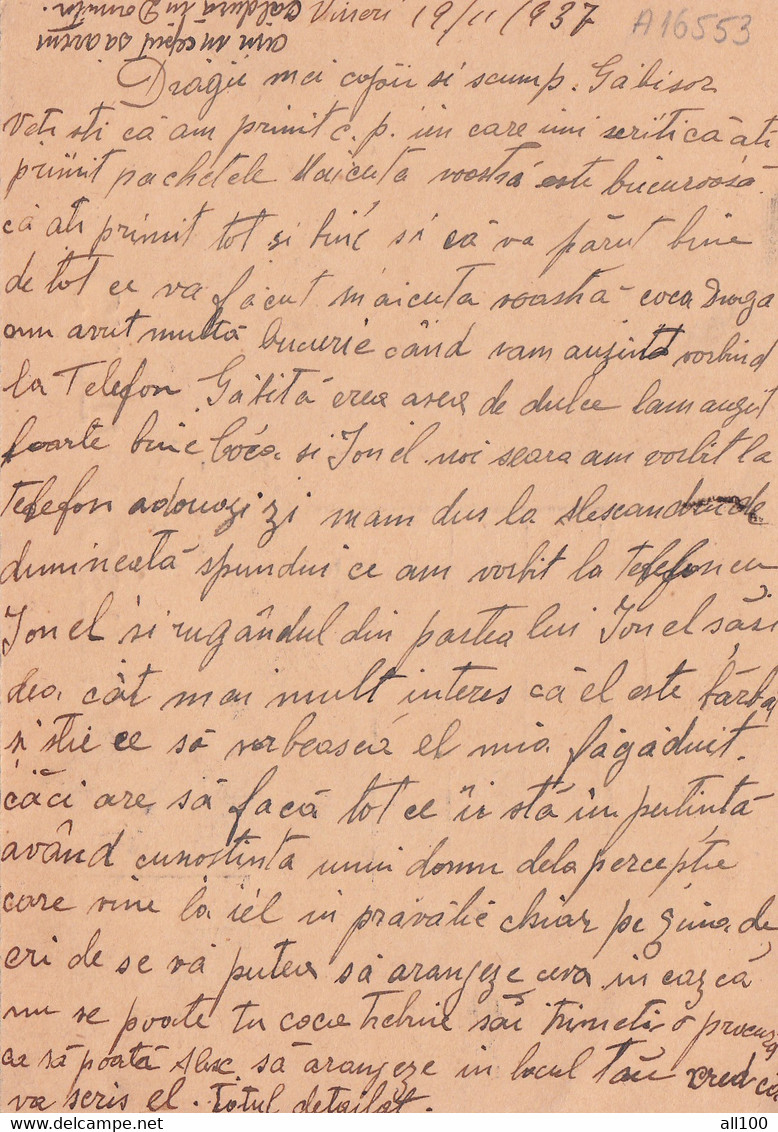 Vineri 19/11/937 A16553
am început sa avem
Căldură în Dormitor.
Dragii mei copii si scump. Găbisor
Veti sti că am primit c.p. in care imi scriti că ati
primit pachetele Maicuta voastră este bucuroasă
că ati primit tot si bine si că va părut bine
de tot ce va făcut măicuta voastră coca Draga
am avut multă bucurie când vam auzint vorbind
la Telefon Găbită era asea de dulce lam auzit
foarte bine Coca si Jonel noi seara am vorbit la
telefon adouazi zi mam dus la Alescandru de
dumineată spundui ce am vorbit la telefon cu
Jonel si rugândul din partea lui Jonel săsi
dea cât mai mult interes că el este bărba
si stie ce să vorbească el mia făgăduit.
căci are să facă tot ce îi stă în putintă
având cunostinta unui domn dela perceptie
care vine la iel in prăvălie chiar pe ziua de
eri de se vă putea să aranjeze ceva in caz că
nu se poate tu coca trebuie săi trimeti o procura
ca să poată Alec. să aranjeze in locul tău cred că
va scris el. totul detailat.